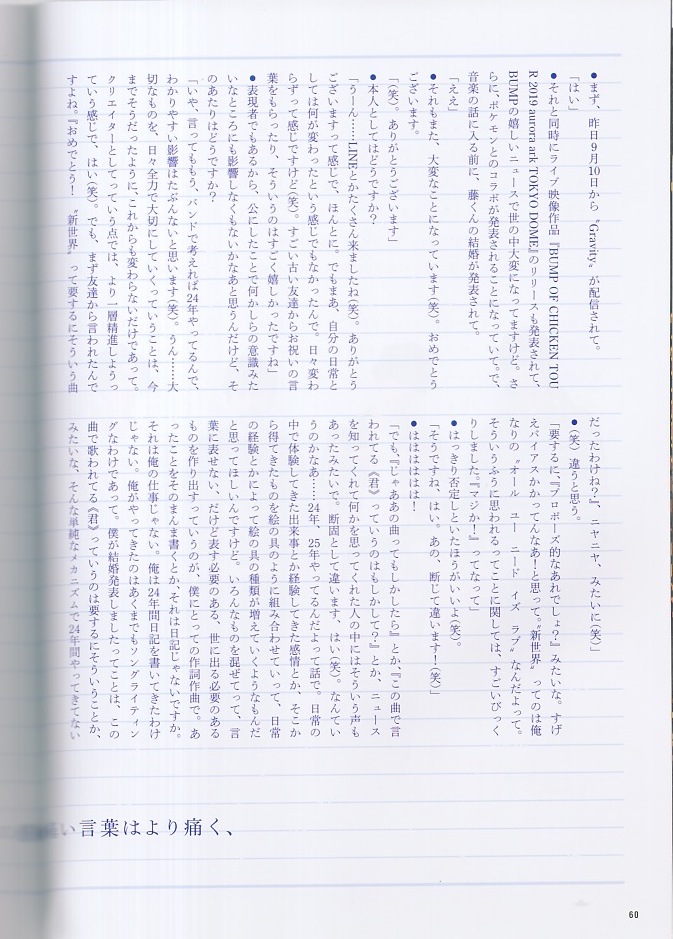 ●まず、昨日9月10日から〝Gravity〟が配信されて。
「はい」
●それと同時にライブ映像作品『BUMP OF CHICKEN TOU
R 2019 aurora ark TOKYO DOME』のリリースも発表されて、
BUMPの嬉しいニュースで世の中大変になってますけど。さ
らに、ポケモンとのコラボが発表されることになっていて。で、
音楽の話に入る前に、藤くんの結婚が発表されて。
「ええ」
●それもまた、大変なことになっています(笑)。おめでとう
ございます。
「(笑)。ありがとうございます」
●本人としてはどうですか?
「うーん……LINEとかたくさん来ましたね(笑)。ありがとう
ございますって感じで、ほんとに。でもまあ、自分の日常と
しては何が変わったという感じでもなかったんで。日々変わ
らずって感じですけど(笑)。すごい古い友達からお祝いの言
葉をもらったり、そういうのはすごく嬉しかったですね」
●表現者でもあるから、公にしたことで何かしらの意識みた
いなところにも影響しなくもないかなあと思うんだけど、そ
のあたりはどうですか?
「いや、言ってももう、バンドで考えれば24年やってるんで、
わかりやすい影響はたぶんないと思います(笑)。うん……大
切なものを、日々全力で大切にしていくっていうことは、今
までそうだったように、これからも変わらないだけであって。
クリエイターとしてっていう点では、より一層精進しようっ
ていう感じで、はい(笑)。でも、まず友達から言われたんで
すよね。『おめでとう! 〝新世界〟って要するにそういう曲
だったわけね?』、ニヤニヤ、みたいに(笑)」
●(笑)違うと思う。
「要するに、『プロポーズ的なあれでしょ?』みたいな。すげ
えバイアスかかってんなあ!と思って。〝新世界〟ってのは俺
なりの〝オール ユー ニード イズ ラブ〟なんだよって。
そういうふうに思われるってことに関しては、すごいびっく
りしました。『マジか!』ってなって」
●はっきり否定しといたほうがいいよ(笑)。
「そうですね、はい。あの、断じて違います!(笑)」
●はははははは!
「でも、『じゃああの曲ってもしかしたら』とか、『この曲で言
われてる《君》っていうのはもしかして?』とか、ニュース
を知ってくれて何かを思ってくれた人の中にはそういう声も
あったみたいで。断固として違います、はい(笑)。なんてい
うのかなあ……24年、25年やってるんだよって話で。日常の
中で体験してきた出来事とか経験してきた感情とか、そこか
ら得てきたものを絵の具のように組み合わせていって、日常
の経験とかによって絵の具の種類が増えていくようなもんだ
と思ってほしいんですけど。いろんなものを混ぜてって、言
葉に表せない、だけど表す必要のある、世に出る必要のある
ものを作り出すっていうのが、僕にとっての作詞作曲で。あ
ったことをそのまんま書くとか、それは日記じゃないですか。
それは俺の仕事じゃない。俺は24年間日記を書いてきたわけ
じゃない。俺がやってきたのはあくまでもソングライティン
グなわけであって。僕が結婚発表しましたってことは、この
曲で歌われてる《君》っていうのは要するにそういうことか、
みたいな、そんな単純なメカニズムで24年間やってきてない
い言葉はより痛く、
60